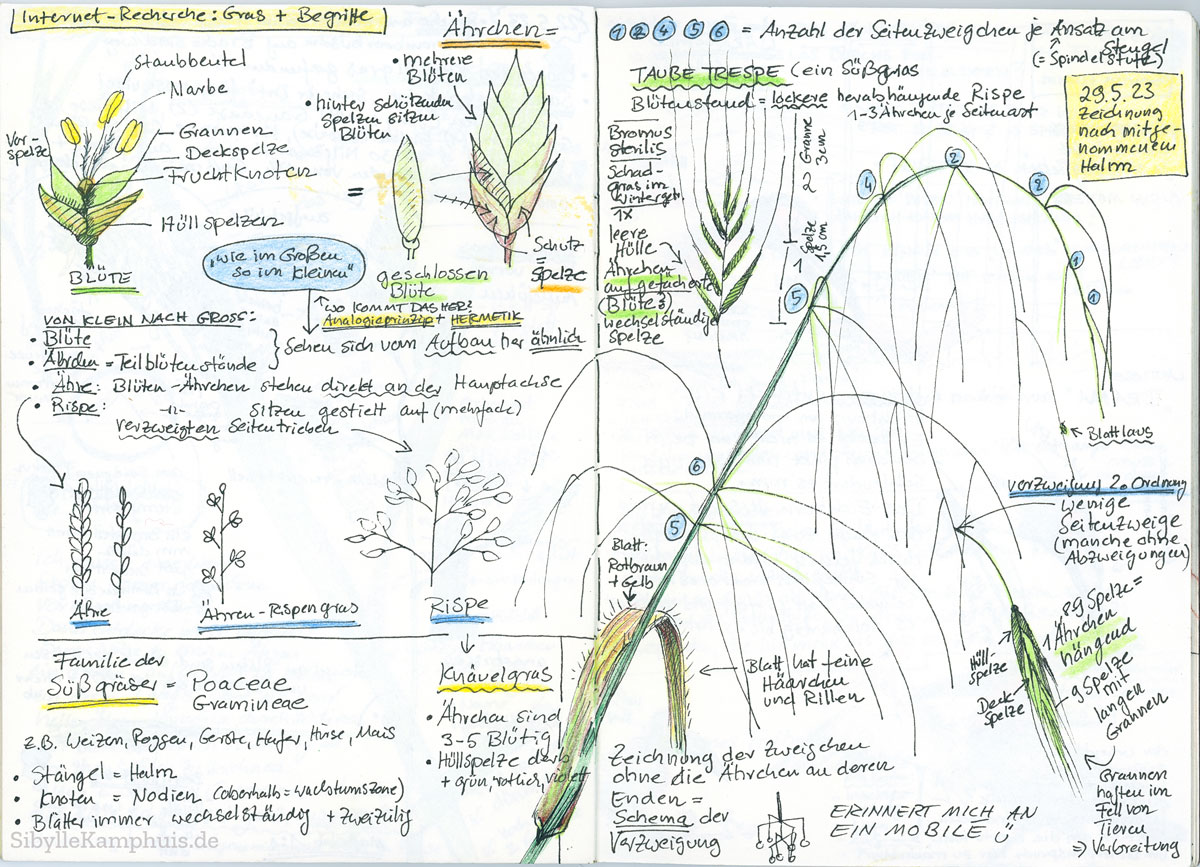 Internet-Recherche: Gras + Begriffe
Staubbeutel
Narbe
Vor-
spelze
Grannen
Deckspelze
Fruchtknoten
Hüllspelzen
BLÜTE
Ährchen =
• mehrere
Blüten
• hinter schützenden
Spelzen sitzen
Blüten
=
"wie im Großen
so im kleinen"
geschlossen
Blüte
Schutz
=
Spelze
WO KOMMT DAS HER?
Analogieprinzip + HERMETIK
VON KLEIN NACH GROSS:
• Blüte
• Ährchen = Teilblütenstände
sehen sich vom Aufbau her ähnlich
• Ähre: Blüten-Ährchen stehen direkt an der Hauptachse
• Rispe: -"- sitzen gestielt auf (mehrfach)
verzweigten Seitentrieben
Ähre
Ähren-Rispengras
RISPE
Familie der
Süßgräser = Poaceae
Gramineae
z.B. Weizen, Roggen, Gerste, Hafer, Hirse, Mais
• Stängel = Halm
• Knoten = Nodien (oberhalb = wachstumszone)
• Blätter immer wechselständig + zweizeilig
SibylleKamphuis.de
Knäuelgras
• Ährchen sind
3-5 Blütig
• Hüllspelze derb
+ grün, rötlich, violett
1 2 4 5 6 = Anzahl der Seitenzweigchen je Ansatz am
Stengel
(= Spindelstufe)
TAUBE TRESPE (ein Süßgras
Blütenstand = lockere herabhängende Rispe
1-3 Ährchen je Seitenast
29.5.23
Zeichnung
nach mitge-
nommenem
Halm
Bromus
sterilis
Schad-
gras im
Winterget.
1x
leere
Hülle
Ährchen
aufgefächerte
(Blüte?)
wechselständige
Spelze
2 Granne
3cm
1 Spelze
1,5 cm
4
2
2
1
1
5
Blattlaus
6
5
Verzweigung 2. Ordnung
wenige
Seitenzweige
(manche ohne
Abzweigungen)
Blatt:
Rotbraun
+ Gelb
Blatt hat feine
Häärchen
und Rillen
Hüll-
spelze
Deck-
Spelze
8g Spelze =
1 Ährchen
hängend
9 Spelze
mit
langen
Grannen
Grannen
haften im
Fell von
Tieren
⇒ Verbreitung
Zeichnung der Zweigchen
ohne die Ährchen an deren
Enden =
Schema der
Verzweigung
ERINNERT MICH AN
EIN MOBILE Ü